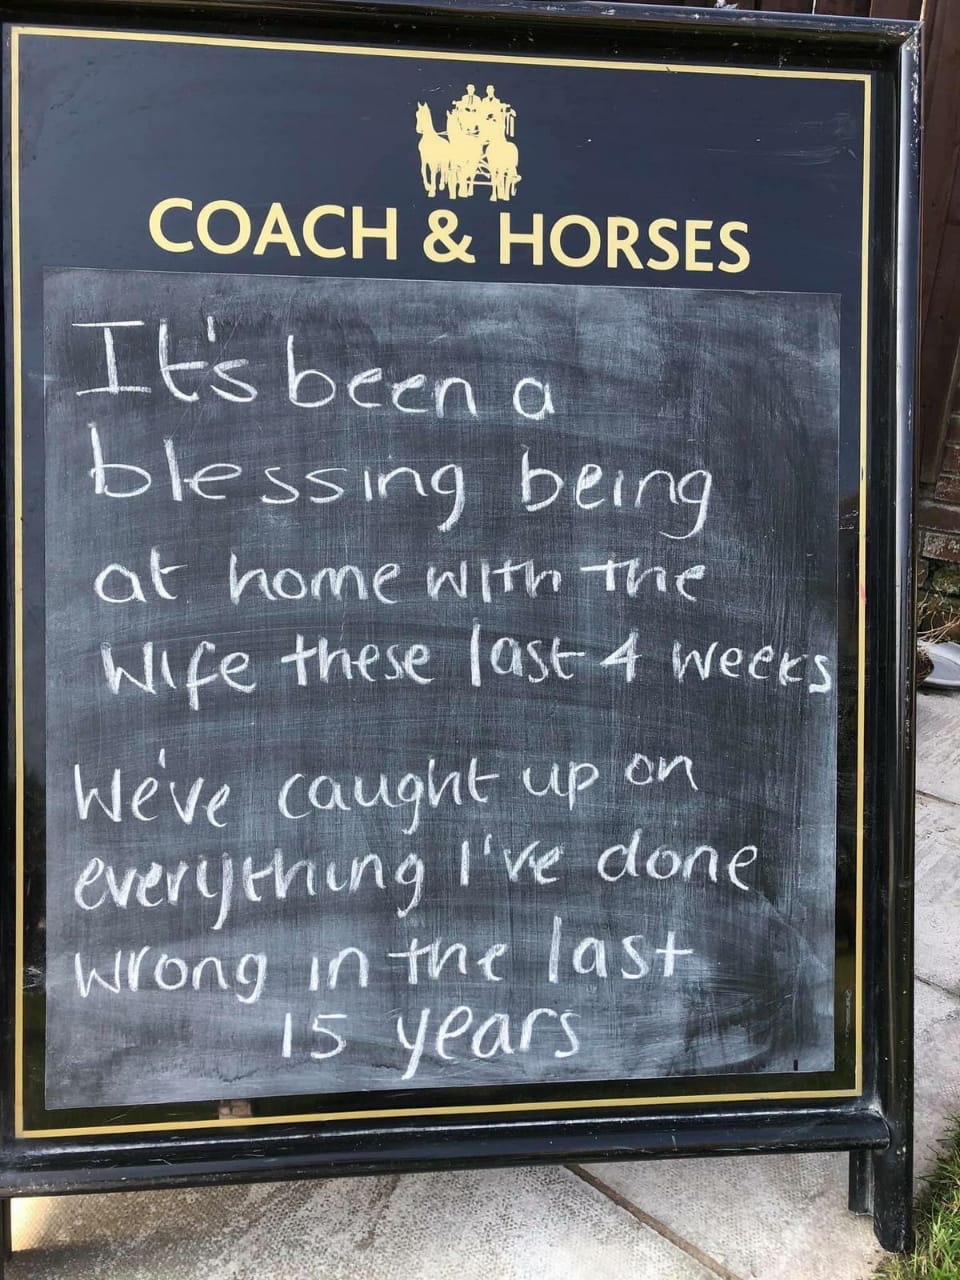 COACH & HORSES
It's been a
blessing being
at home with the
wife these last 4 weeks
We've caught up on
everything I've done
wrong in the last
15 years